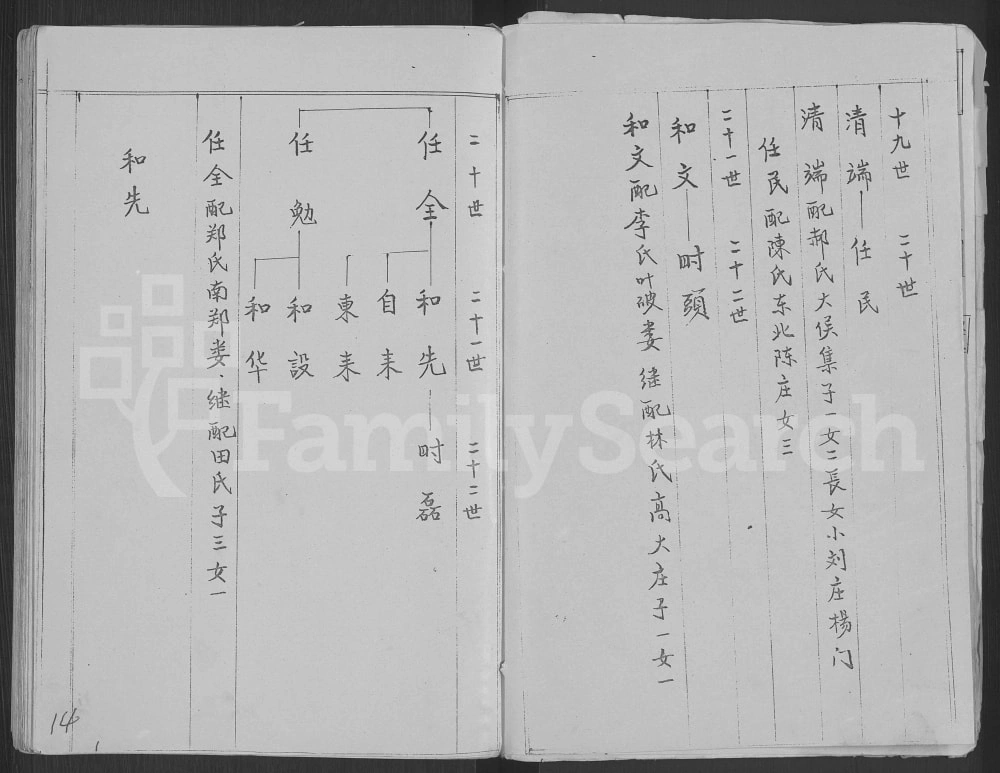 十九世 二十世
清端 任民
清端配郝氏大侯集子一女二長女小刘庄楊门
任民配陳氏东北陈庄女三
二十一世 二十二世
和文 时頭
和文配李氏叶破娄 继配林氏高大庄子一女一
二十世 二十一世 二十二世
任全 和先 时磊
自来
東来
任勉 和設
和华
任全配郑氏南郑娄.继配田氏子三女一
和先
14
FamilySearch